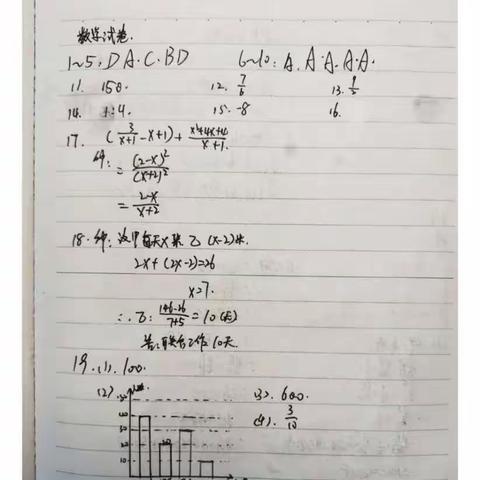 数学试卷.
1~5: D A. C. B D 6~10: A. A. A. A. A.
11. 150. 12. 7/6 13.
14. 15. -8 16.
17. (3/(x+1) - x+1) ÷ (x²+4x+4)/(x+1)
解: = (2-x)²/(x+2)²
= (2-x)/(x+2)
18. 解: 设甲每天x米. 乙(x-2)米.
2x+(2x-2)=26
x=7.
∴ = 10(天)
答: 联合工作10天.
19. (1). 100.
(2) (3). 600.
(4). 3/10
50
40
30
20
10